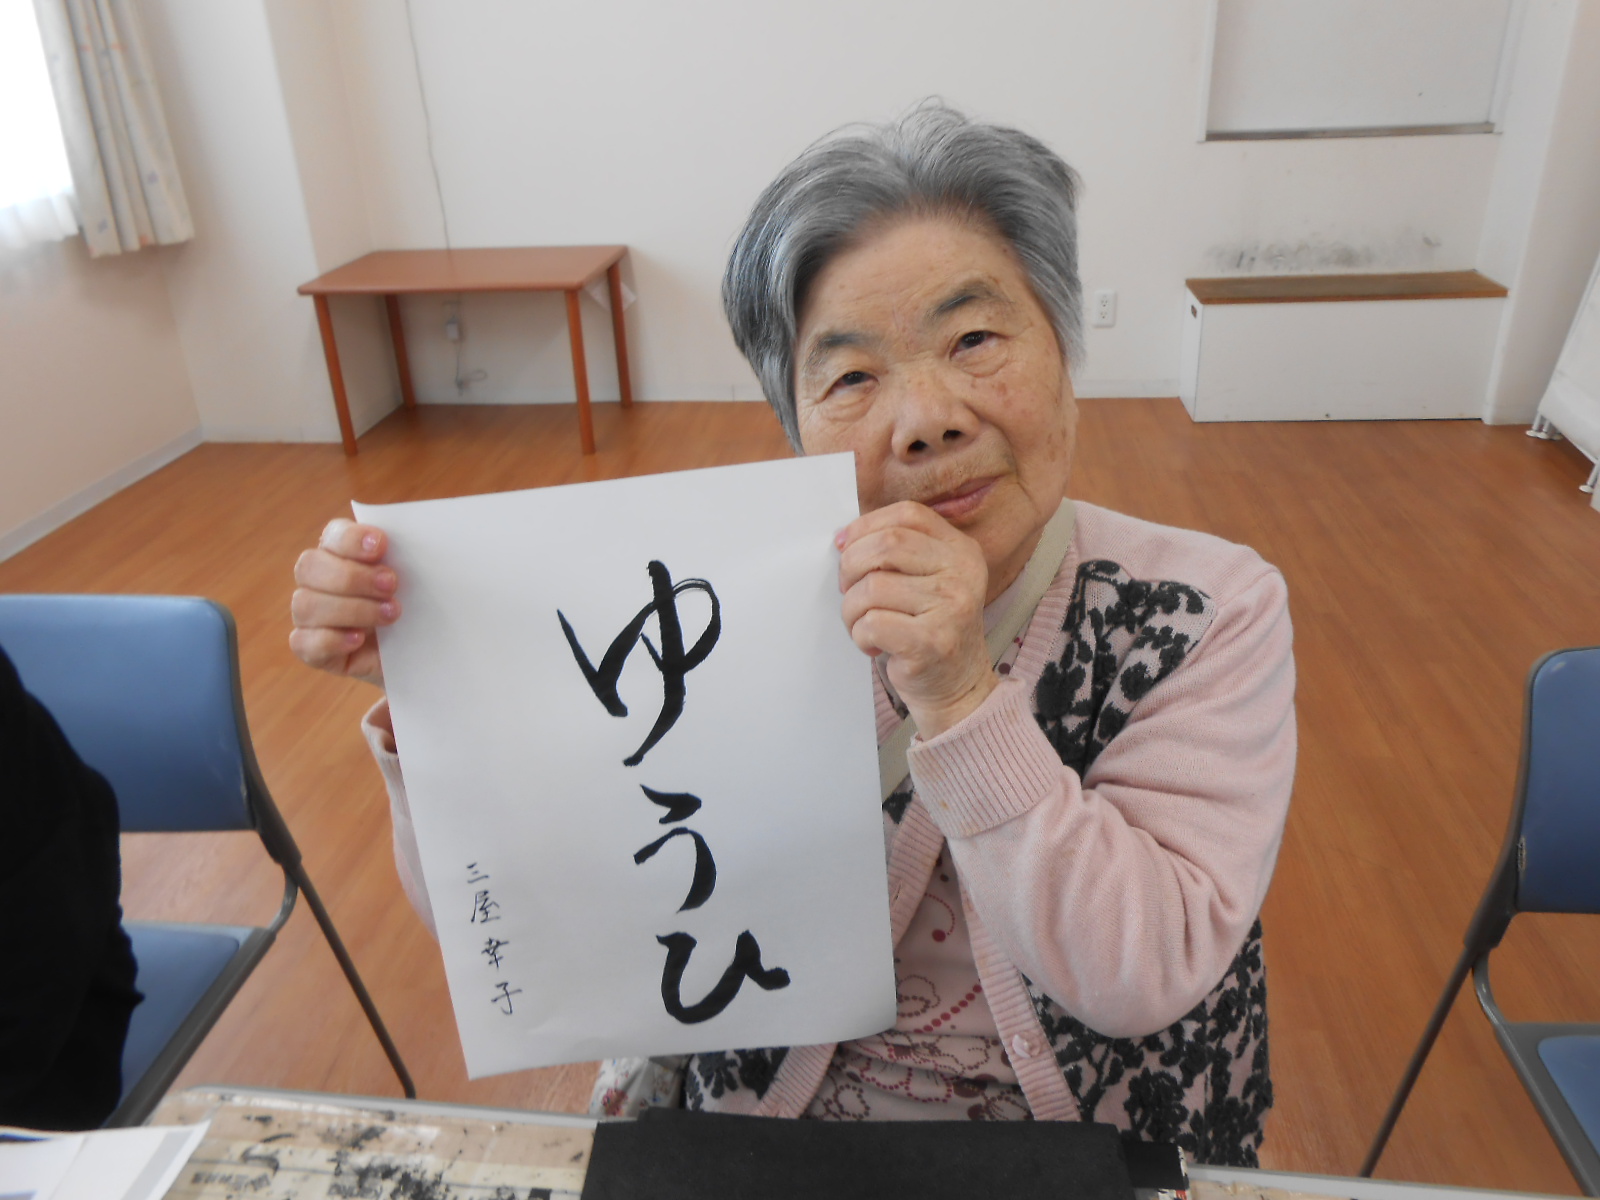 ゆうひ
三屋幸子